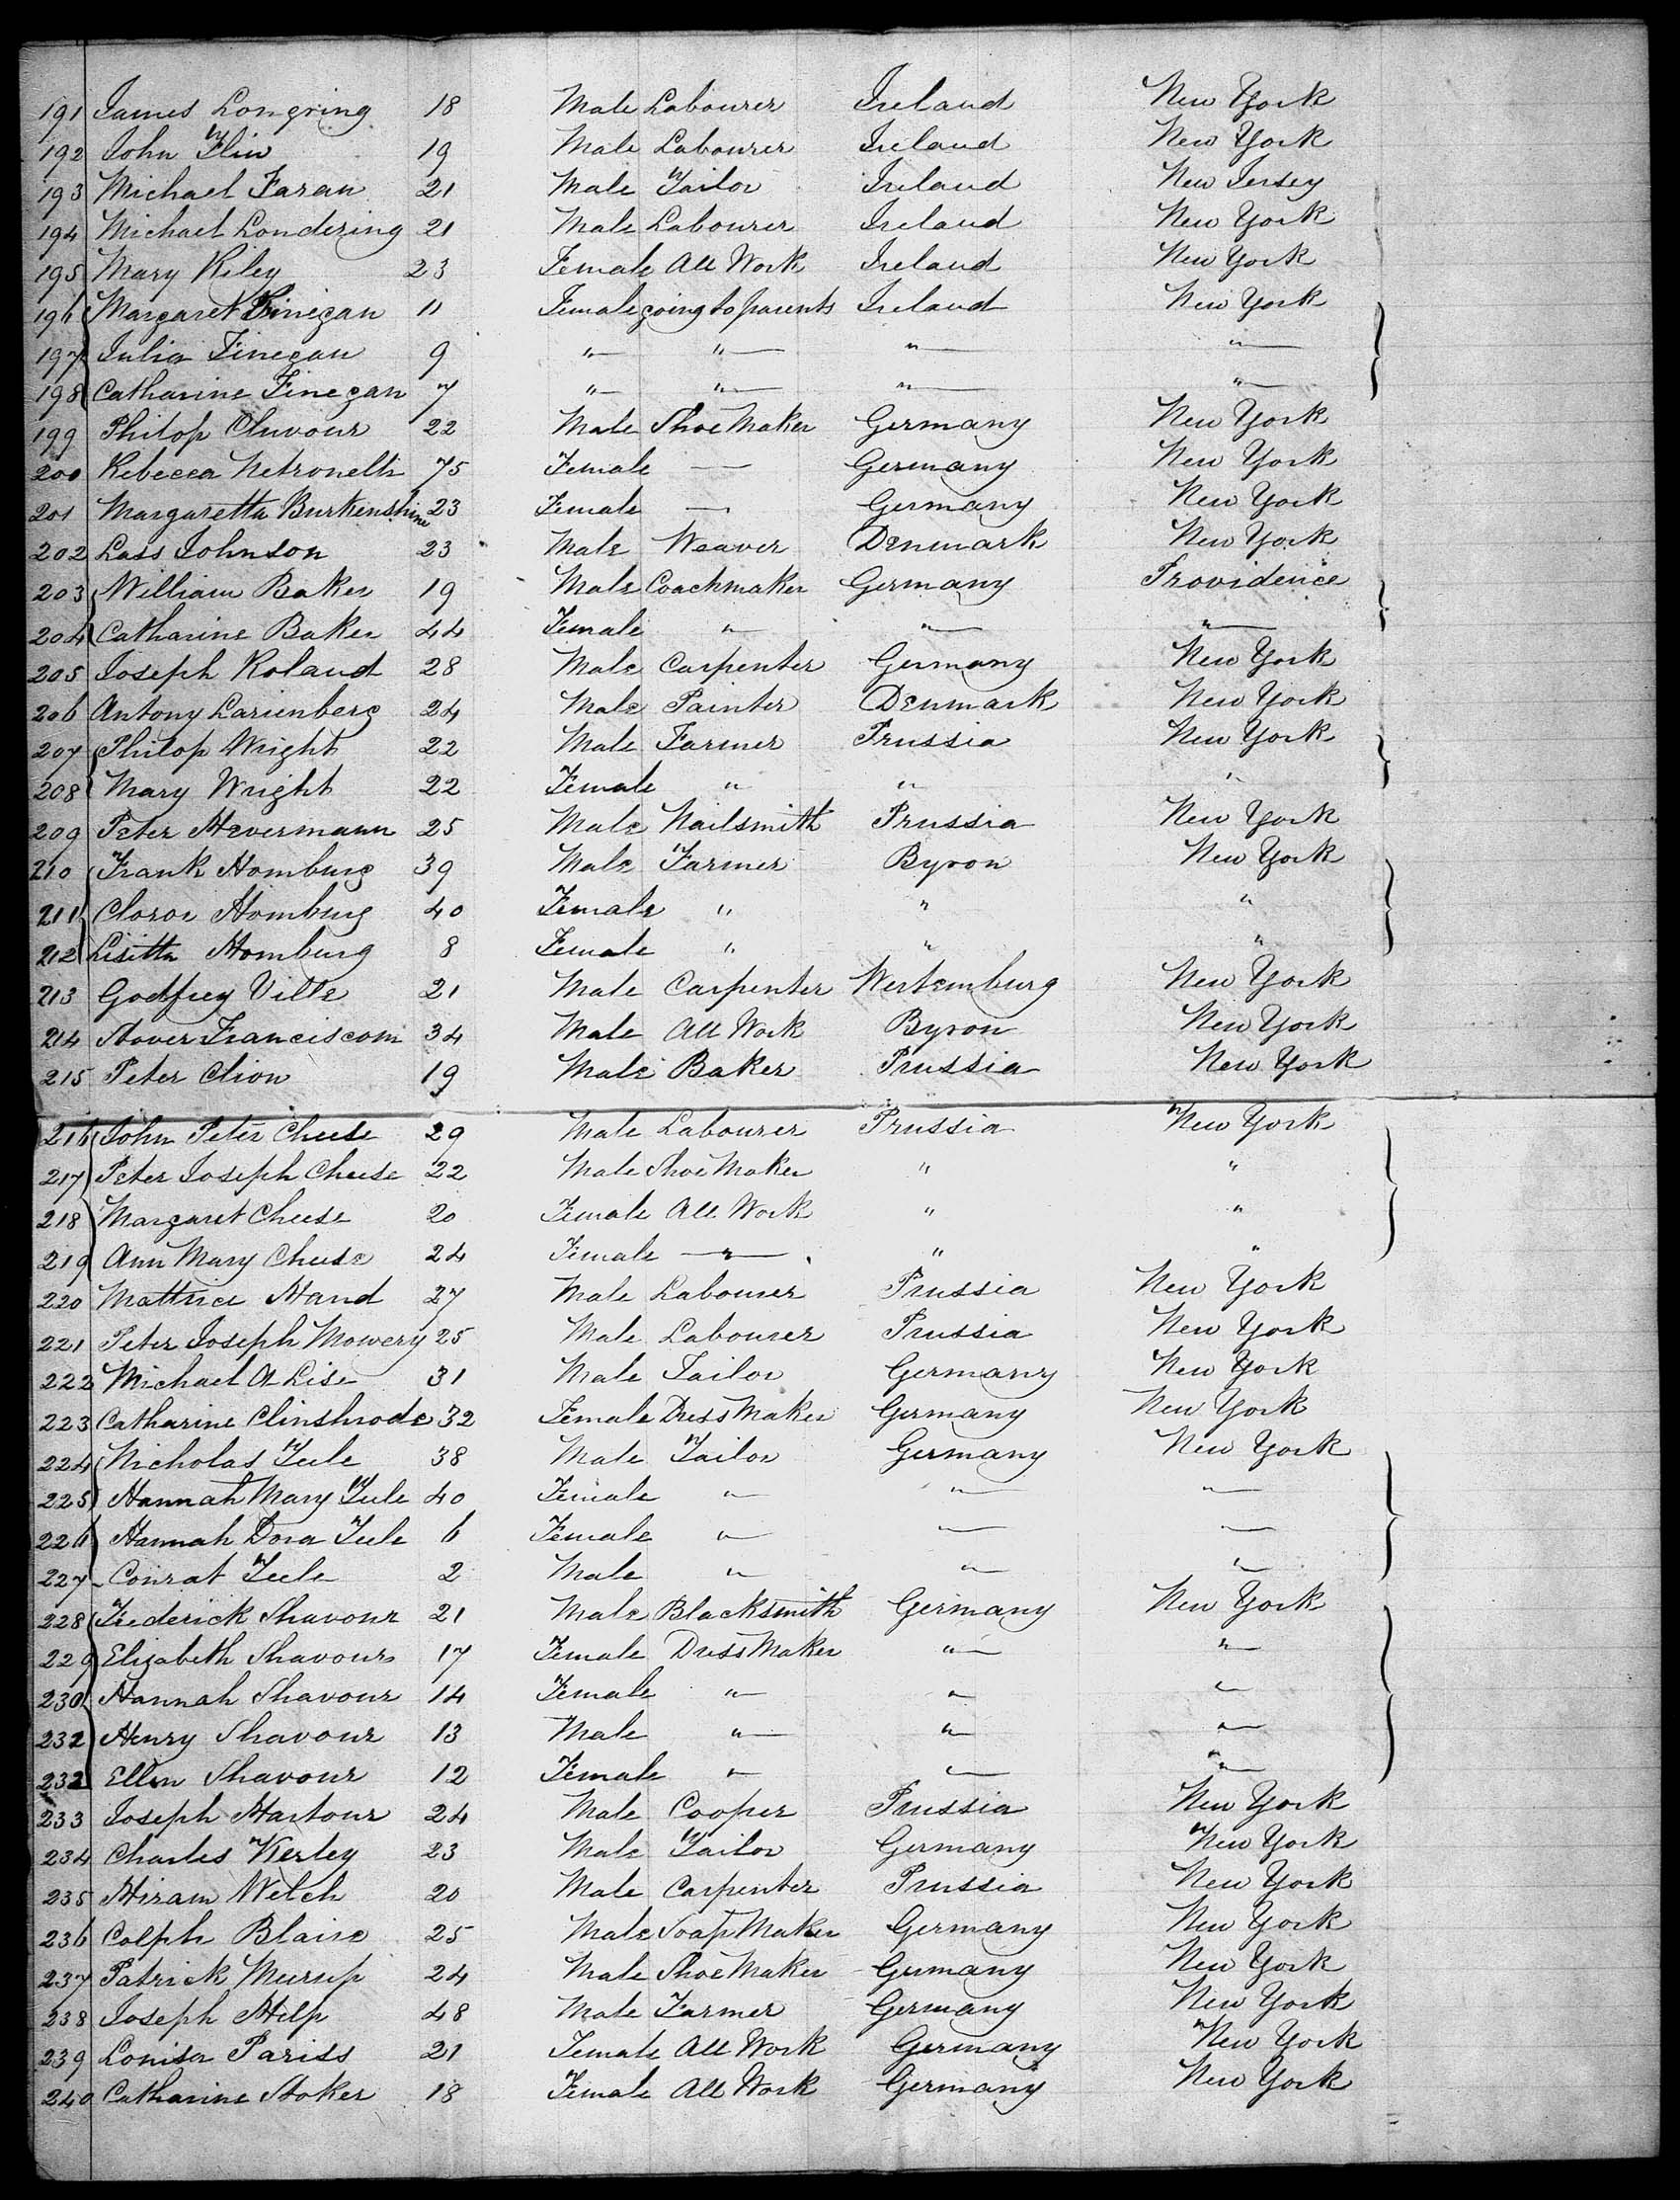 191 James Longring 18 Male Labourer Ireland New York
192 John Flin 19 Male Labourer Ireland New York
193 Michael Faran 21 Male Tailor Ireland New Jersey
194 Michael Londering 21 Male Labourer Ireland New York
195 Mary Riley 23 Female All Work Ireland New York
196 Margaret Finigan 11 Female going to parents Ireland New York
197 Julia Finegan 9 " " " "
198 Catharine Finegan 7 " " " "
199 Philop Cluvour 22 Male Shoe Maker Germany New York
200 Rebecca Netronelli 75 Female — Germany New York
201 Margaretta Burkenshine 23 Female — Germany New York
202 Lass Johnson 23 Male Weaver Denmark New York
203 William Baker 19 Male Coachmaker Germany Providence
204 Catharine Baker 44 Female " " "
205 Joseph Roland 28 Male Carpenter Germany New York
206 Antony Larienberg 24 Male Painter Denmark New York
207 Philop Wright 22 Male Farmer Prussia New York
208 Mary Wright 22 Female " " "
209 Peter Hevermann 25 Male Nailsmith Prussia New York
210 Frank Homburg 39 Male Farmer Byron New York
211 Cloroe Homburg 40 Female " " "
212 Lisitta Homburg 8 Female " " "
213 Godfrey Ville 21 Male Carpenter Wertemburg New York
214 Stover Franciscom 34 Male All Work Byron New York
215 Peter Clion 19 Male Baker Prussia New York
216 John Peter Cheese 29 Male Labourer Prussia New York
217 Peter Joseph Cheese 22 Male Shoe Maker " "
218 Margaret Cheese 20 Female All Work " "
219 Ann Mary Cheese 24 Female " " "
220 Mattrice Hand 27 Male Labourer Prussia New York
221 Peter Joseph Mowery 25 Male Labourer Prussia New York
222 Michael A Lise 31 Male Tailor Germany New York
223 Catharine Clinshrode 32 Female Dress Maker Germany New York
224 Nicholas Teele 38 Male Tailor Germany New York
225 Hannah Mary Teele 40 Female " " "
226 Hannah Dora Teele 6 Female " " "
227 Conrat Teele 2 Male " " "
228 Frederick Shavour 21 Male Blacksmith Germany New York
229 Elizabeth Shavour 17 Female Dress Maker " "
230 Hannah Shavour 14 Female " " "
232 Henry Shavour 13 Male " " "
232 Ellen Shavour 12 Female " " "
233 Joseph Hartour 24 Male Cooper Prussia New York
234 Charles Kerley 23 Male Tailor Germany New York
235 Hiram Welch 20 Male Carpenter Prussia New York
236 Colph Blaise 25 Male Soap Maker Germany New York
237 Patrick Murup 24 Male Shoe Maker Germany New York
238 Joseph Hilp 48 Male Farmer Germany New York
239 Louisa Pariss 21 Female All Work Germany New York
240 Catharine Stoker 18 Female All Work Germany New York